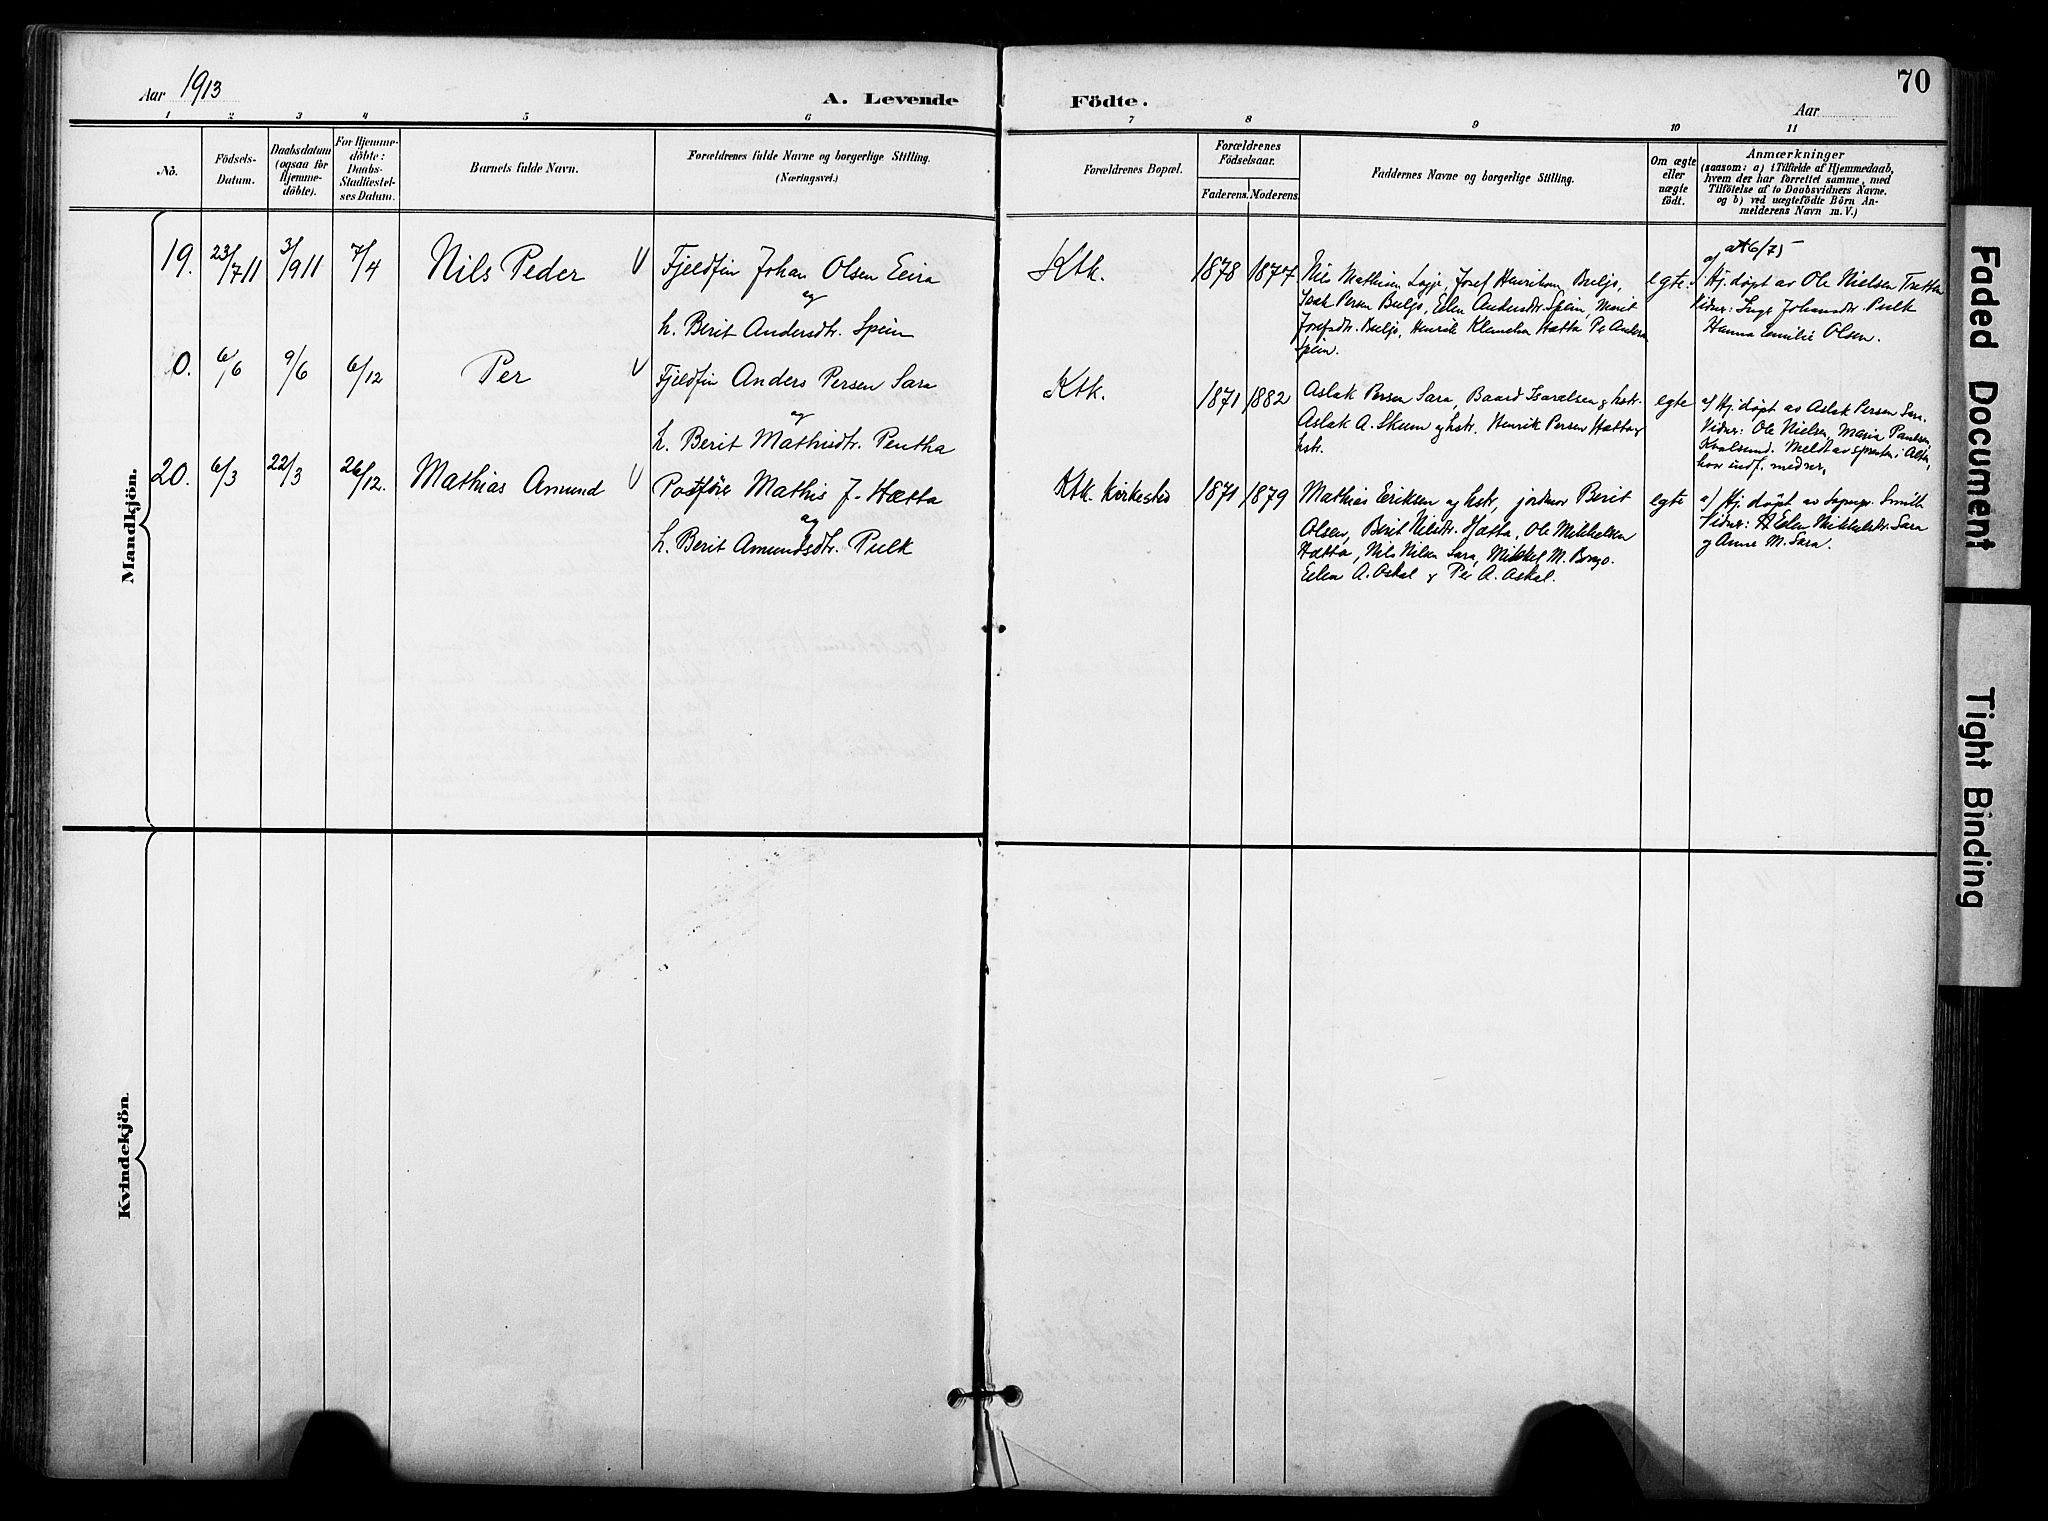 Aar 1913
A. Levende Födte.
Aar
70
1 2 3 4 5 6 7 8 9 10 11
No.
Födsels-Datum.
Daabsdatum (ogsaa for Hjemme-döbte).
For Hjemme-döbte: Daabs-Stadfæstel-ses Datum.
Barnets fulde Navn.
Forældrenes fulde Navne og borgerlige Stilling.
(Næringsvei.)
Forældrenes Bopæl.
Forældrenes Födselsaar.
Faderens. Moderens.
Faddernes Navne og borgerlige Stilling.
Om ægte eller uægte födt.
Anmærkninger
(saasom: a) i Tilfælde af Hjemmedaab, hvem der har forrettet samme, med Tilföielse af to Daabsvidners Navne, og b) ved uægtefödte Börn Anmelderens Navn m. V.)
Mandkjön.
19. 23/7 11 3/9 11 7/4 Nils Peder V Fjeldfin Johan Olsen Eira
og
h. Berit Andersdtr. Spein
Ktk. 1878 1877
Nils Mathisen Logje, Josef Henriksen Buljo,
Isak Persen Buljo, Elen Andersdtr. Spein, Marit
Josefsdtr. Buljo, Henrik Klemetsen Hætta Per Anders
Spein.
egte.
at 6/75
a/ Hj. døpt av Ole Nielsen Tretten
Vidner: Inge Johansdtr. Pulk
Hanna Emilie Olsen.
0. 6/6 9/6 6/12 Per V Fjeldfin Anders Persen Sara
og
h. Berit Mathisdtr. Pentha
Ktk. 1871 1882
Aslak Persen Sara, Baard Isaralsen og hstr.
Aslak A. Skum og hstr. Henrik Persen Hætta og
hstr.
egte
a/ Hj. døpt av Aslak Persen Sara.
Vidner: Ole Nielsen, Maria Paulsen,
Kvalsund. Meldt av spresten i Alten,
20. 6/3 22/3 26/12. Mathias Amund V Postfører Mathis J. Hætta
og
h. Berit Amundsdtr. Pulk
Ktk. Kirkested 1871 1879
Mathias Eriksen og hstr, jordmor Berit
Olsen, Berit Nilsdtr. Hætta, Ole Mikkelsen
Hætta, Nils Nilsen Sara, Mikkel M. Bongo.
Elen A. Oskal & Per A. Oskal.
egte
a/ Hj. døpt av Sognepr. Smith
Vidner: Elen Mikkelsdtr. Sara
og Anne M. Sara.
Kvindekjön.
Faded Document
Tight Binding